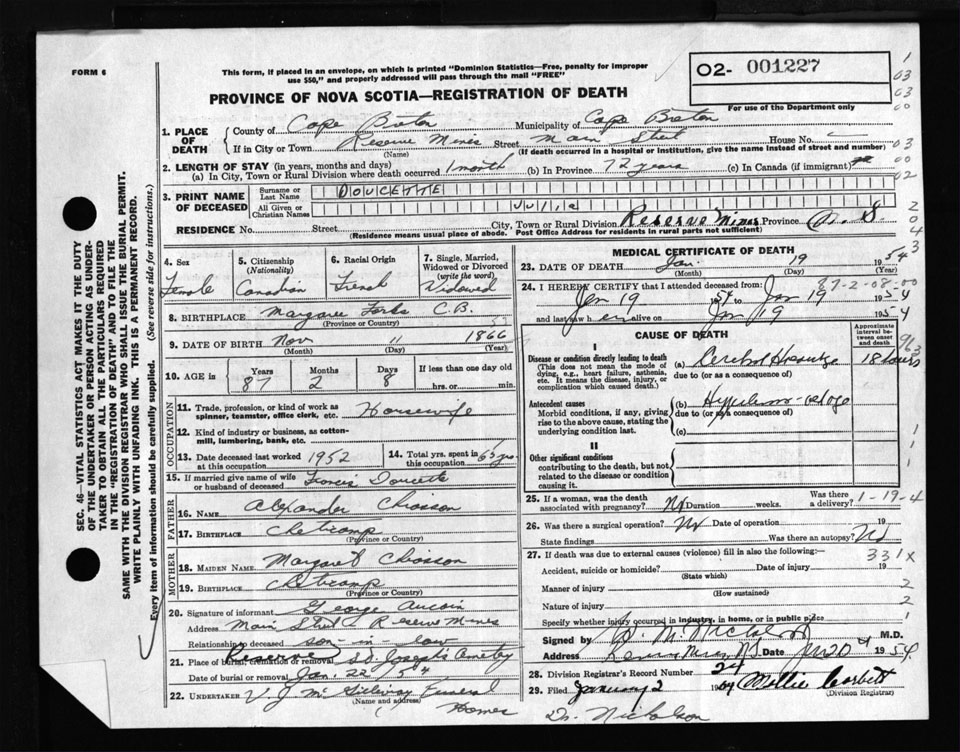 FORM 6
This form, if placed in an envelope, on which is printed "Dominion Statistics—Free, penalty for improper
use $50," and properly addressed will pass through the mail "FREE"
02- 001227
For use of the Department only
PROVINCE OF NOVA SCOTIA—REGISTRATION OF DEATH
1. PLACE OF DEATH County of Cape Breton Municipality of Cape Breton
If in City or Town Reserve Mines Street Main Street House No.
(Name) (If death occurred in a hospital or institution, give the name instead of street and number)
2. LENGTH OF STAY (in years, months and days)
(a) In City, Town or Rural Division where death occurred 1 month (b) In Province 72 years (c) In Canada (if immigrant)
3. PRINT NAME OF DECEASED Surname or Last Name DOUCETTE
All Given or Christian Names Julia
RESIDENCE No. Street City, Town or Rural Division Reserve Mines Province N. S.
(Residence means usual place of abode. Post Office Address for residents in rural parts not sufficient)
4. Sex Female
5. Citizenship (Nationality) Canadian
6. Racial Origin French
7. Single, Married, Widowed or Divorced (write the word) Widowed
8. BIRTHPLACE Margaree Forks C.B.
(Province or Country)
9. DATE OF BIRTH Nov 11 1866
(Month) (Day) (Year)
10. AGE Years 87 Months 2 Days 8 If less than one day old hrs. or min.
OCCUPATION
11. Trade, profession, or kind of work as spinner, teamster, office clerk, etc. Housewife
12. Kind of industry or business, as cotton-mill, lumbering, bank, etc.
13. Date deceased last worked at this occupation 1952
14. Total yrs. spent in this occupation 65 yrs.
15. If married give name of wife or husband of deceased Francis Doucette
FATHER
16. NAME Alexander Chiasson
17. BIRTHPLACE Cheticamp
(Province or Country)
MOTHER
18. MAIDEN NAME Margaret Chiasson
19. BIRTHPLACE Cheticamp
(Province or Country)
20. Signature of informant George Aucoin
Address Main Street Reserve Mines
Relationship to deceased son-in-law
21. Place of burial, cremation or removal Reserve St. Joseph's Cemetery
Date of burial or removal Jan. 22/54
22. UNDERTAKER V. J. McGillivray Funeral Homes
(Name and address)
MEDICAL CERTIFICATE OF DEATH
23. DATE OF DEATH Jan. 19 1954
(Month) (Day) (Year)
87-2-08-00
24. I HEREBY CERTIFY that I attended deceased from
Jan 19 1954 to Jan 19 1954
and last saw her alive on Jan 19 1954
CAUSE OF DEATH
Approximate interval between onset and death
I
Disease or condition directly leading to death
(This does not mean the mode of dying, e.g., heart failure, asthenia, etc. It means the disease, injury, or complication which caused death.)
(a) Cerebral Hemorrhage 18 hours
due to (or as a consequence of)
Antecedent causes
Morbid conditions, if any, giving rise to the above cause, stating the underlying condition last.
(b)
due to (or as a consequence of)
(c)
II
Other significant conditions
contributing to the death, but not related to the disease or condition causing it.
25. If a woman, was the death associated with pregnancy? No Duration weeks. Was there a delivery?
1-19-4
26. Was there a surgical operation? No Date of operation 19
State findings Was there an autopsy? No
27. If death was due to external causes (violence) fill in also the following:—
331X
Accident, suicide or homicide? Date of injury 19
(State which)
Manner of injury 2
(How sustained)
Nature of injury 2
Specify whether injury occurred in industry, in home, or in public place 1
Signed by M.D.
Address Reserve Mines N.S. Date Jan 20 1954
28. Division Registrar's Record Number 24
29. Filed January 2 Mollie Corbett
(Division Registrar)
Dr. Nicholson
SEC. 46—VITAL STATISTICS ACT MAKES IT THE DUTY
OF THE UNDERTAKER OR PERSON ACTING AS UNDER-
TAKER TO OBTAIN ALL THE PARTICULARS REQUIRED
IN THE "REGISTRATION OF DEATH" AND TO FILE THE
SAME WITH THE DIVISION REGISTRAR WHO SHALL ISSUE THE BURIAL PERMIT.
WRITE PLAINLY WITH UNFADING INK. THIS IS A PERMANENT RECORD.
Every item of information should be carefully supplied. (See reverse side for instructions.)